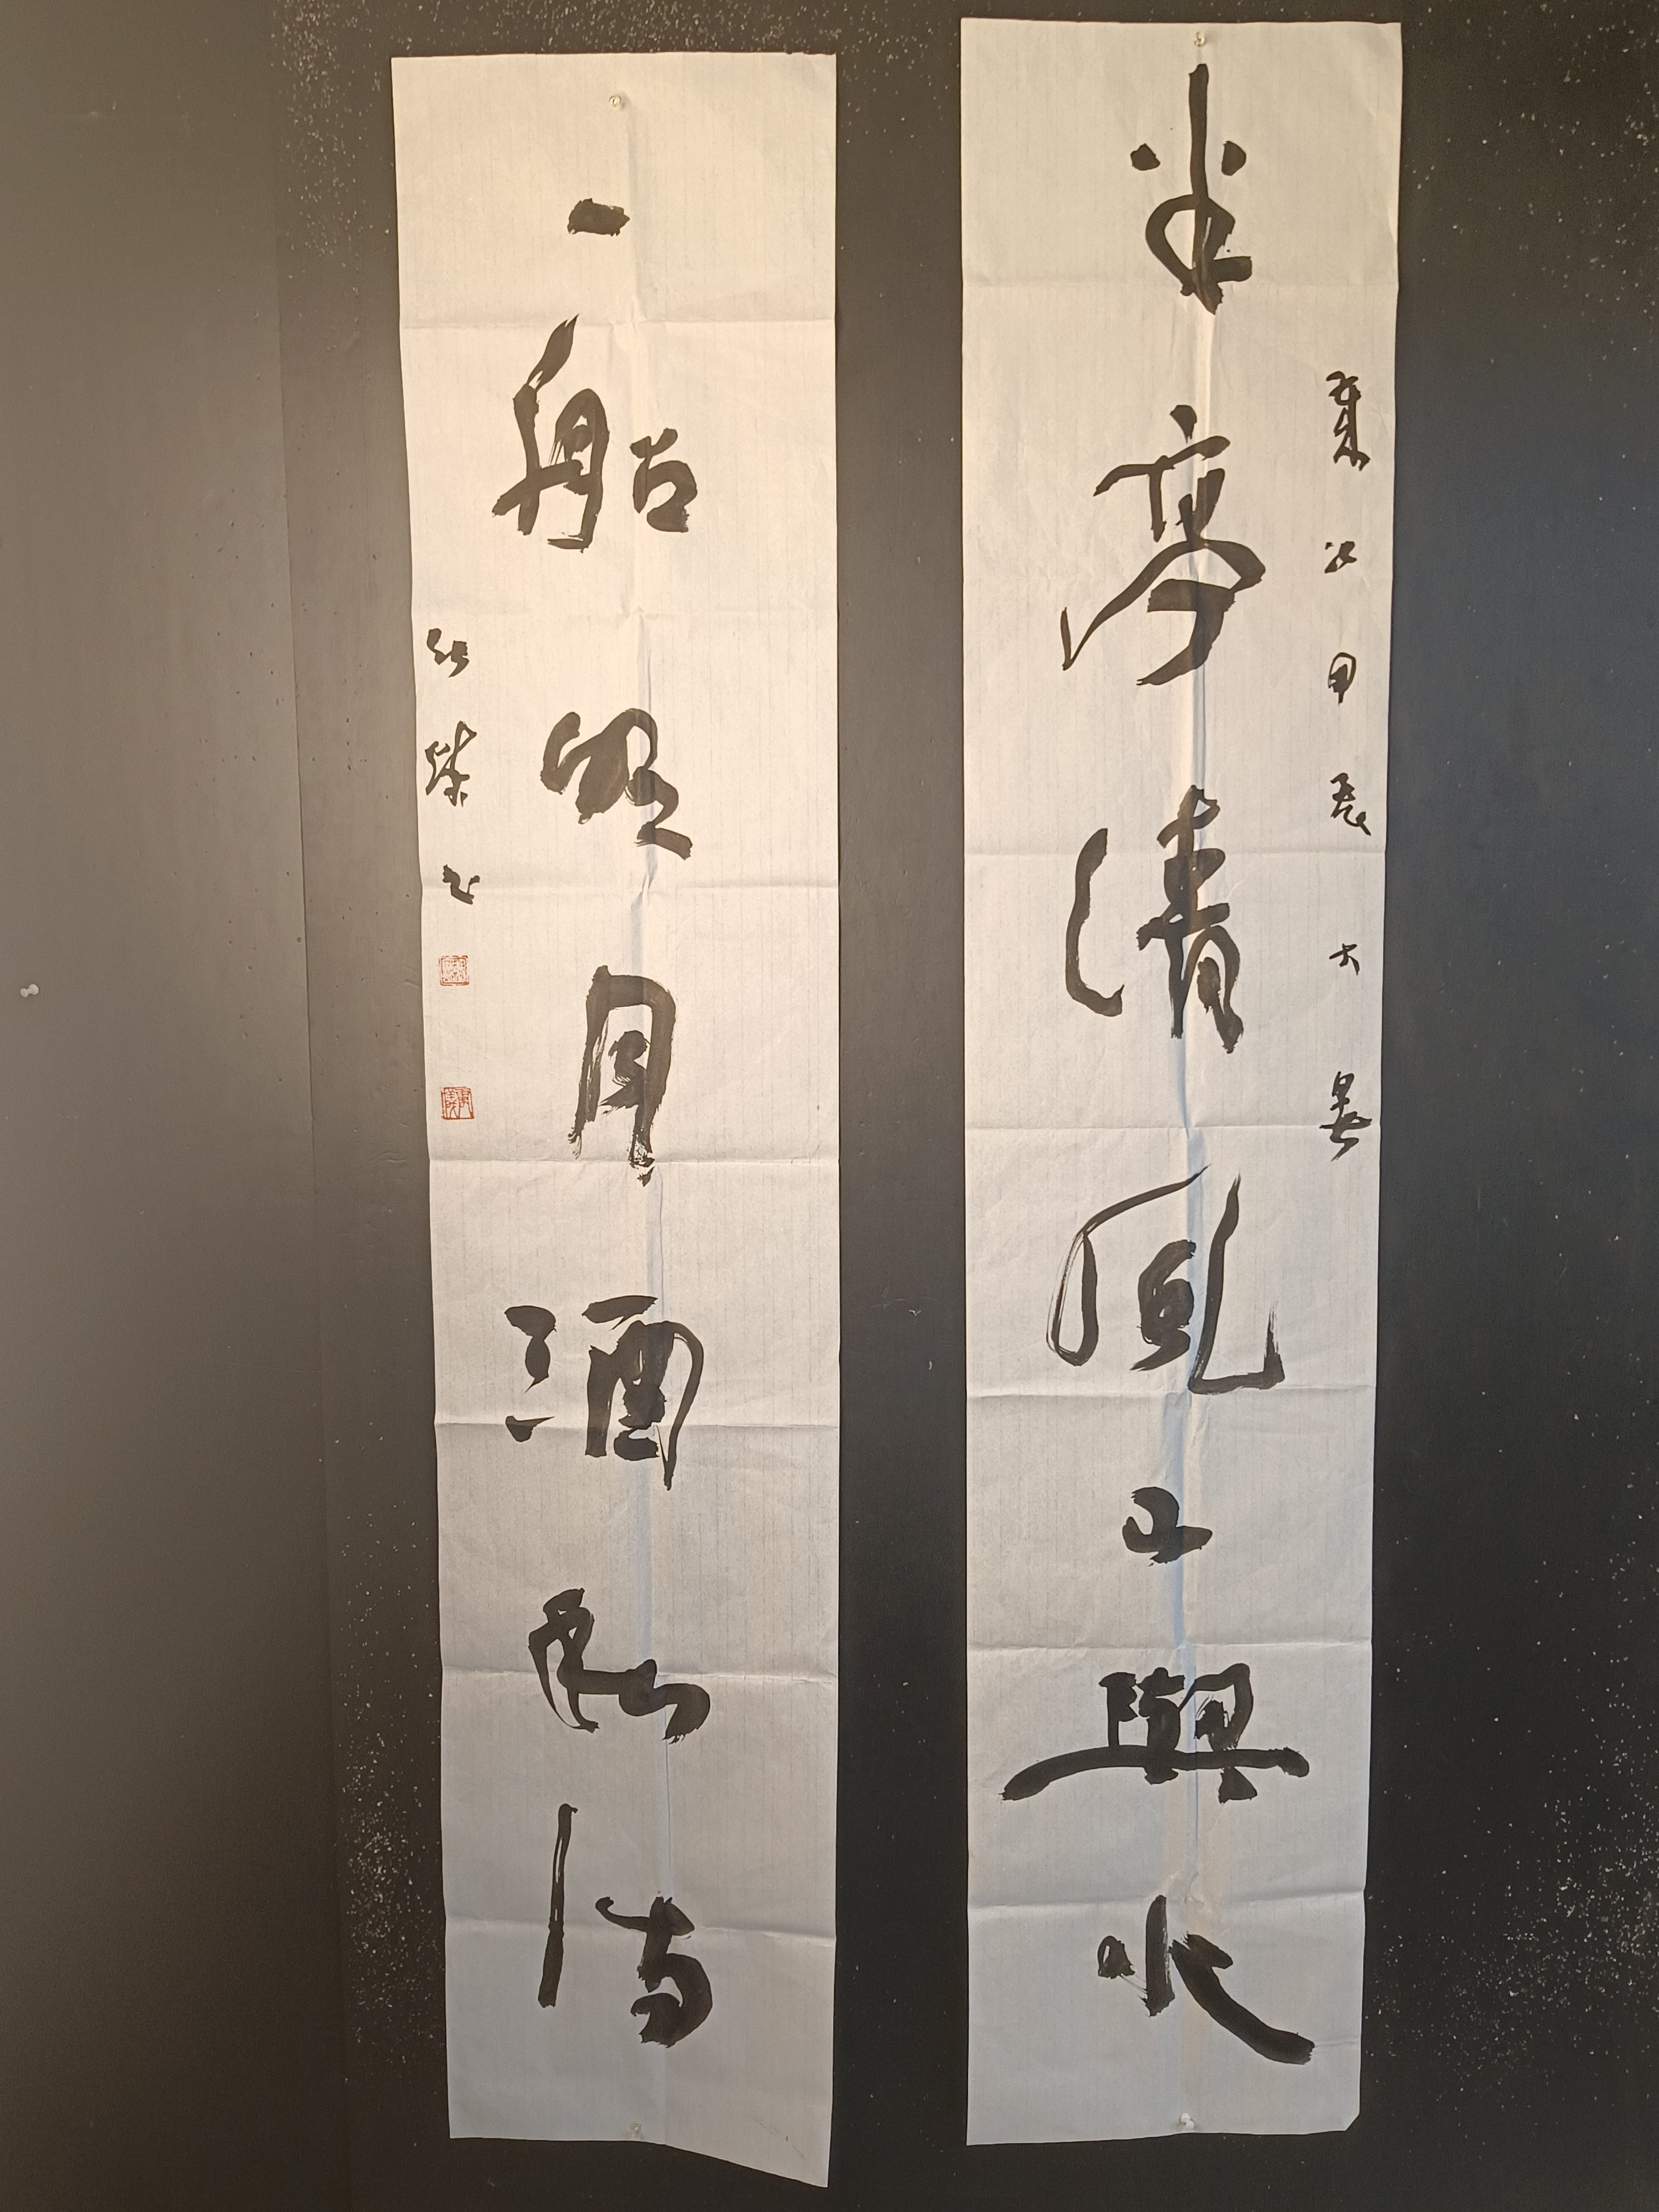 歲次甲辰大暑
半亭清風山與水
一船明月酒和詩
书